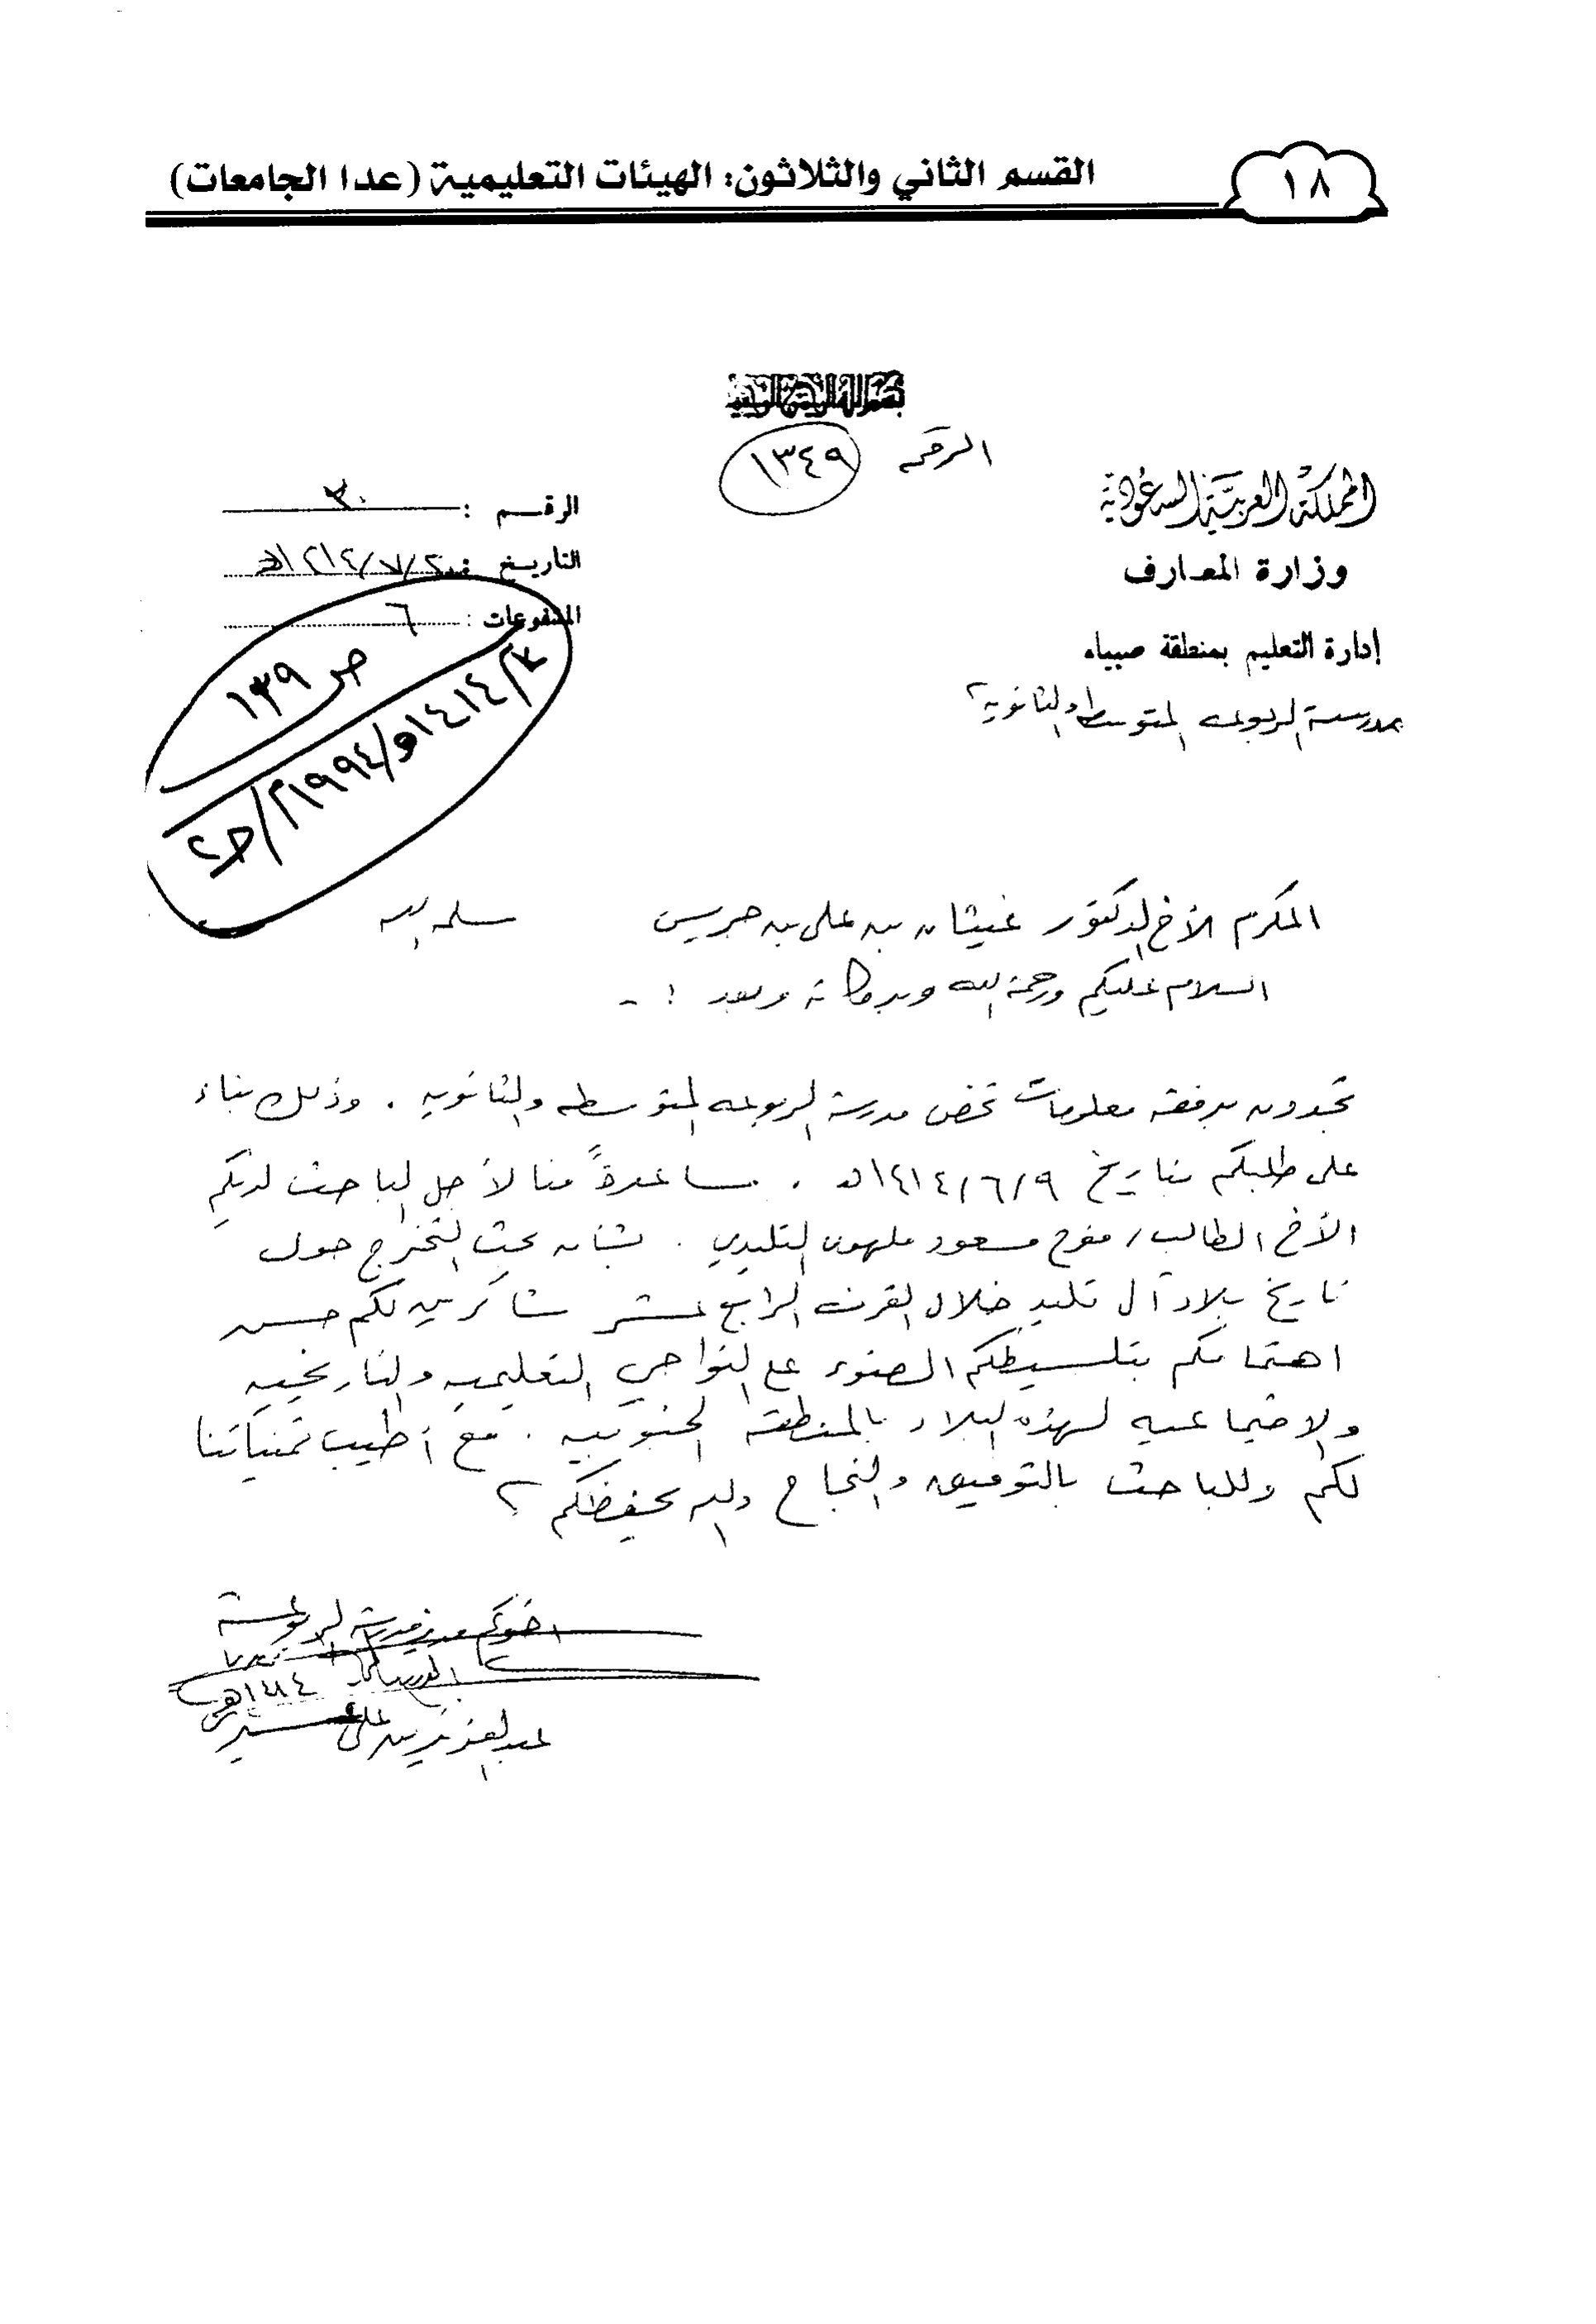 ١٨
القسم الثاني والثلاثون: الهيئات التعليمية (عدا الجامعات)
بسم الله الرحمن الرحيم
الرقم ١٣٤٩
المملكة العربية السعودية
وزارة المعارف
إدارة التعليم بمنطقة صبياء
مدرسة الربوعه المتوسطة والثانوية
الرقم : ٣٠
التاريخ : ٢٠/٧/١٤١٤هـ
المشفوعات : ٦
ص ١٣٩
١٤١٤هـ/١٩٩٤م/
المكرم الأخ الدكتور غيثان بن علي بن جريس سلمه الله
السلام عليكم ورحمة الله وبركاته وبعد :-
تجدون برفقه معلومات تخص مدرسة الربوعه المتوسطه والثانويه . وذلك بناء
على طلبكم بتاريخ ١٤١٤/٦/٩هـ . مساعدةً منا لأجل الباحث لديكم
الأخ الطالب / مفرح مسعود ملهوي التليدي . بشأن بحث التخرج حول
تاريخ بلاد آل تليد خلال القرن الرابع عشر شاكرين لكم حسن
اهتمامكم بتلسيطكم الضوء على النواحي التعليميه والتاريخيه
والاجتماعيه لهذه البلاد بالمنطقه الجنوبيه . مع أطيب تمنياتنا
لكم وللباحث بالتوفيق والنجاح والله يحفظكم
اخوكم مدير مدرسة الربوعة
١٤١٤هـ
عبدالعزيز بن علي